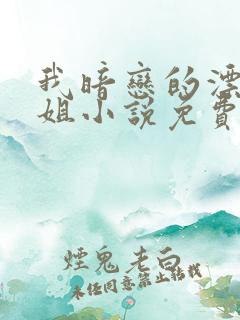 我暗戀的漂
姐小說免費
煙鬼老白
未经同意禁止转载